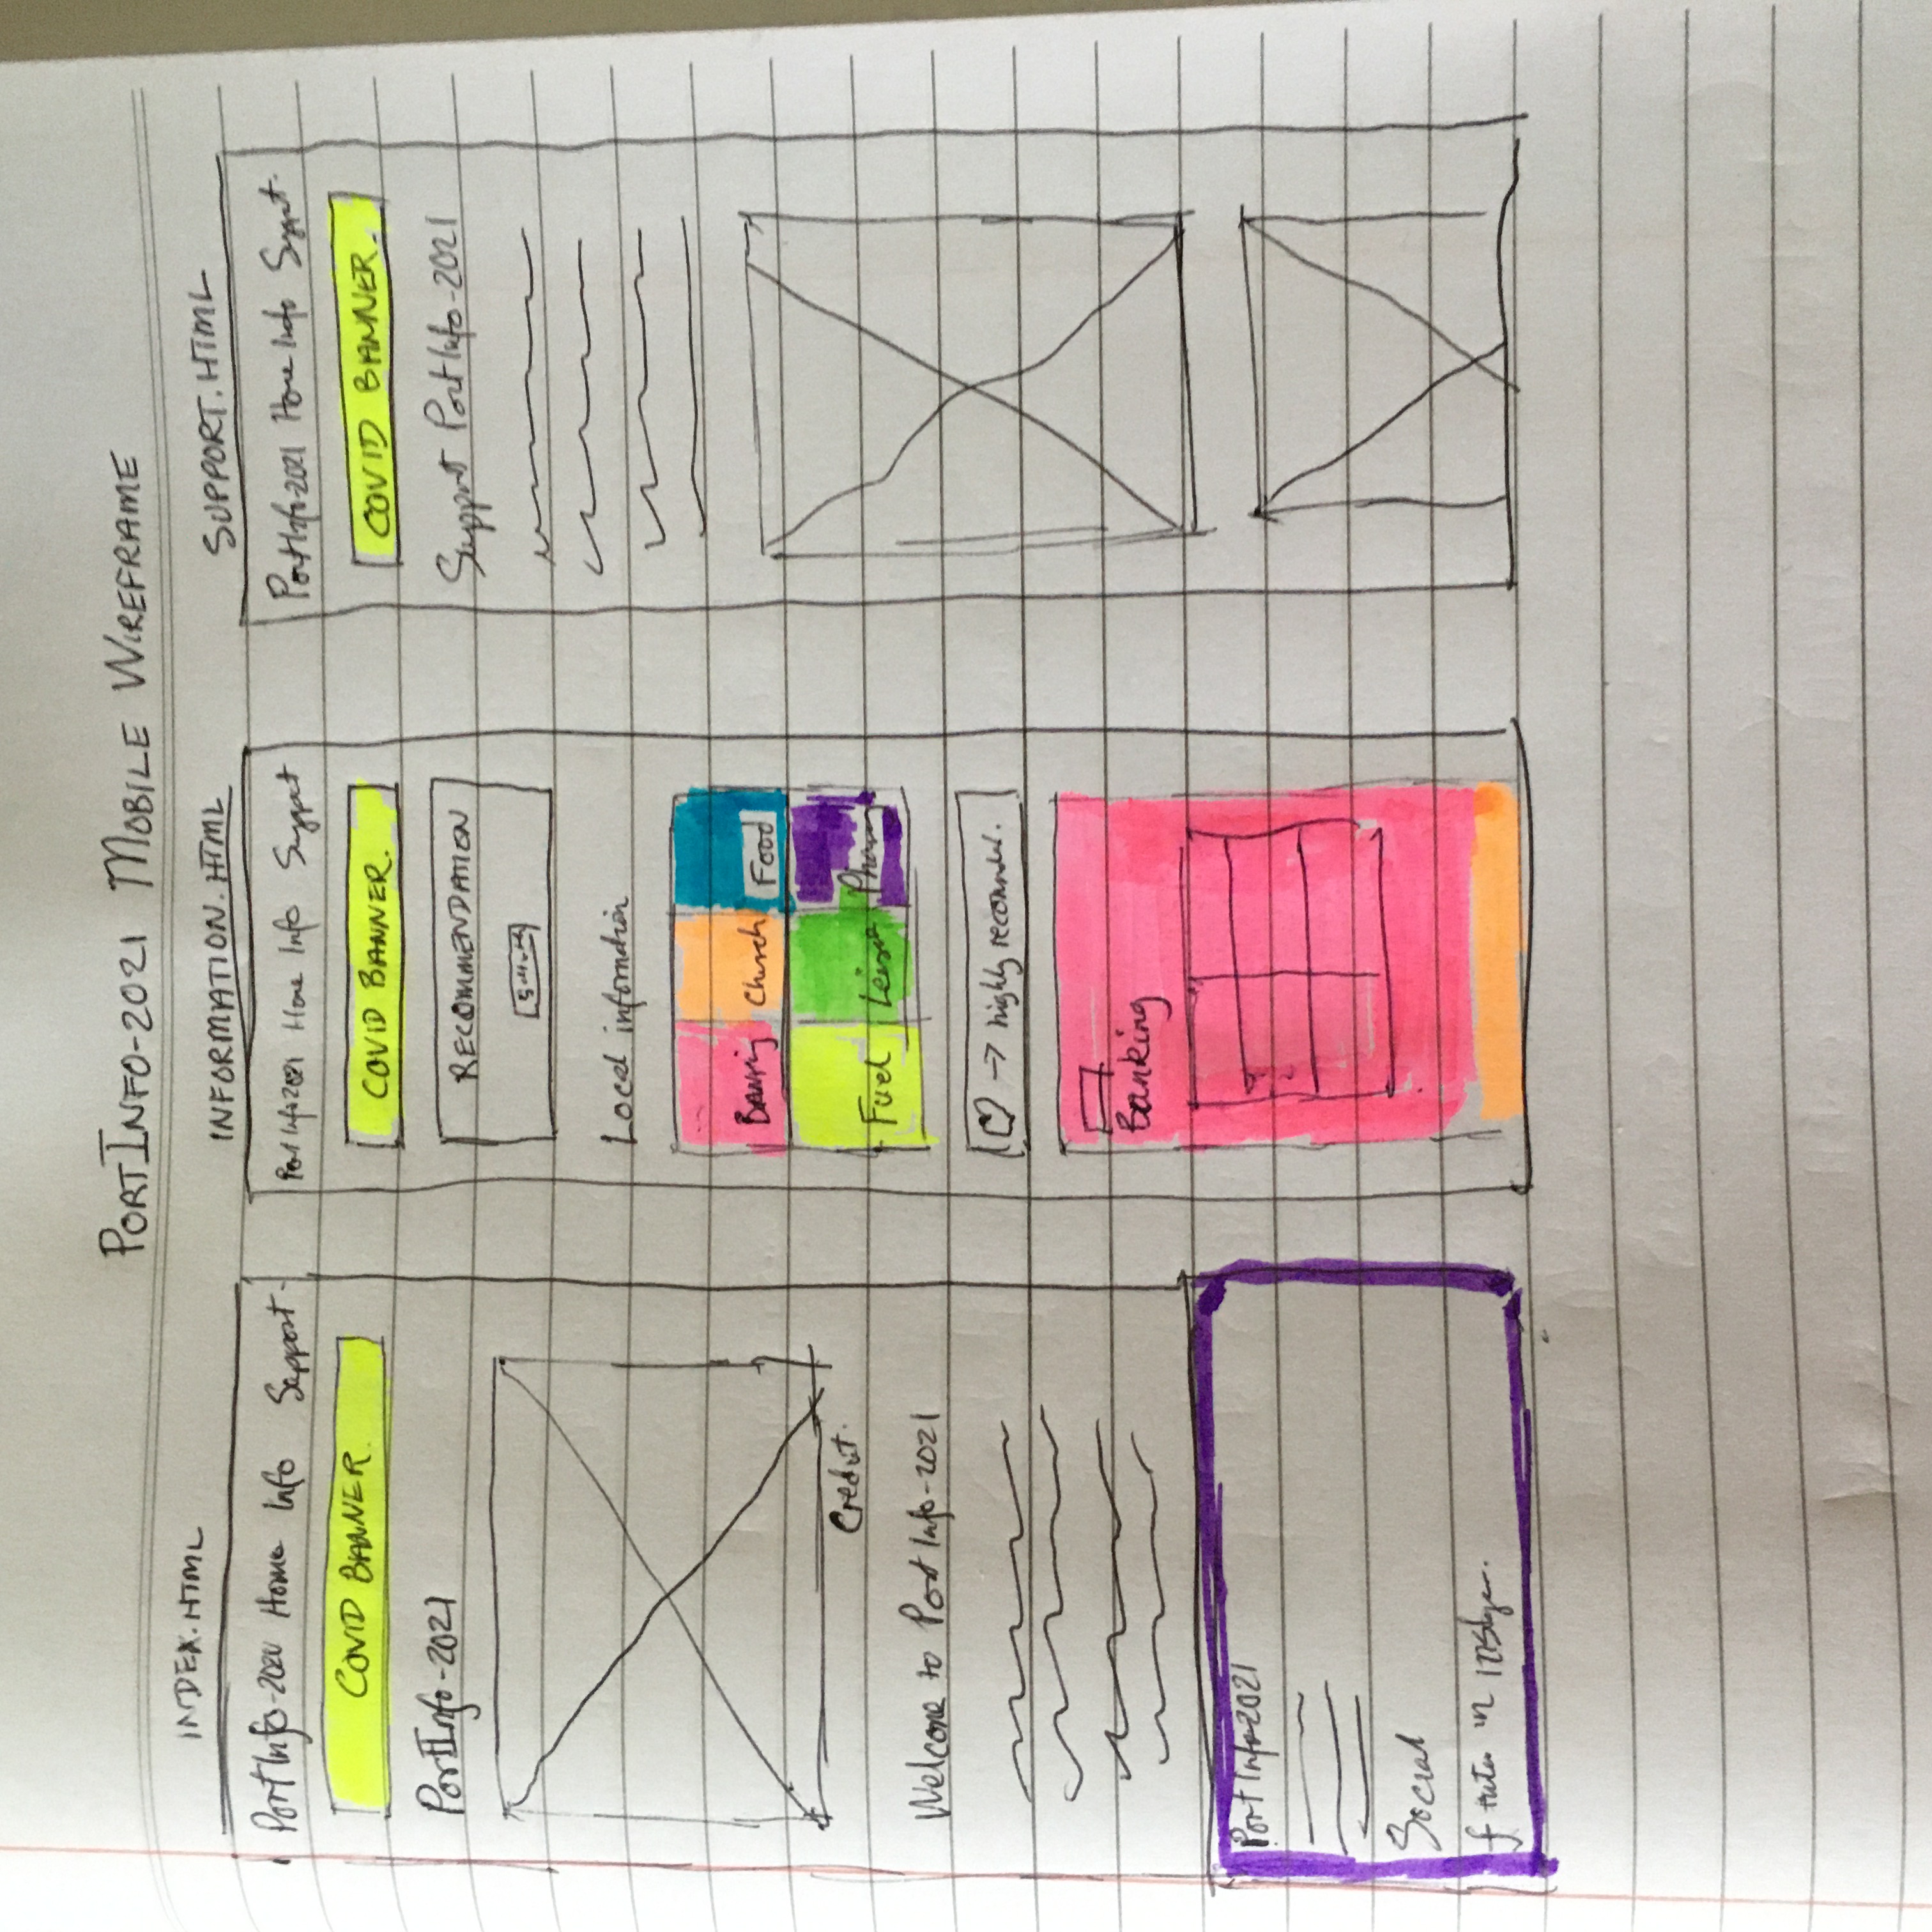 PORTINFO-2021 MOBILE WIREFRAME
INDEX.HTML
PortInfo-2021 Home Info Support
COVID BANNER.
PortInfo-2021
Credit.
Welcome to PortInfo-2021
PortInfo2021
Social
f in
INFORMATION.HTML
PortInfo2021 Home Info Support
COVID BANNER.
RECOMMENDATION
Local information
Banking Church Food
Fuel Leisure
→ highly
Banking
SUPPORT.HTML
PortInfo-2021 Home Info Support.
COVID BANNER.
Support PortInfo-2021